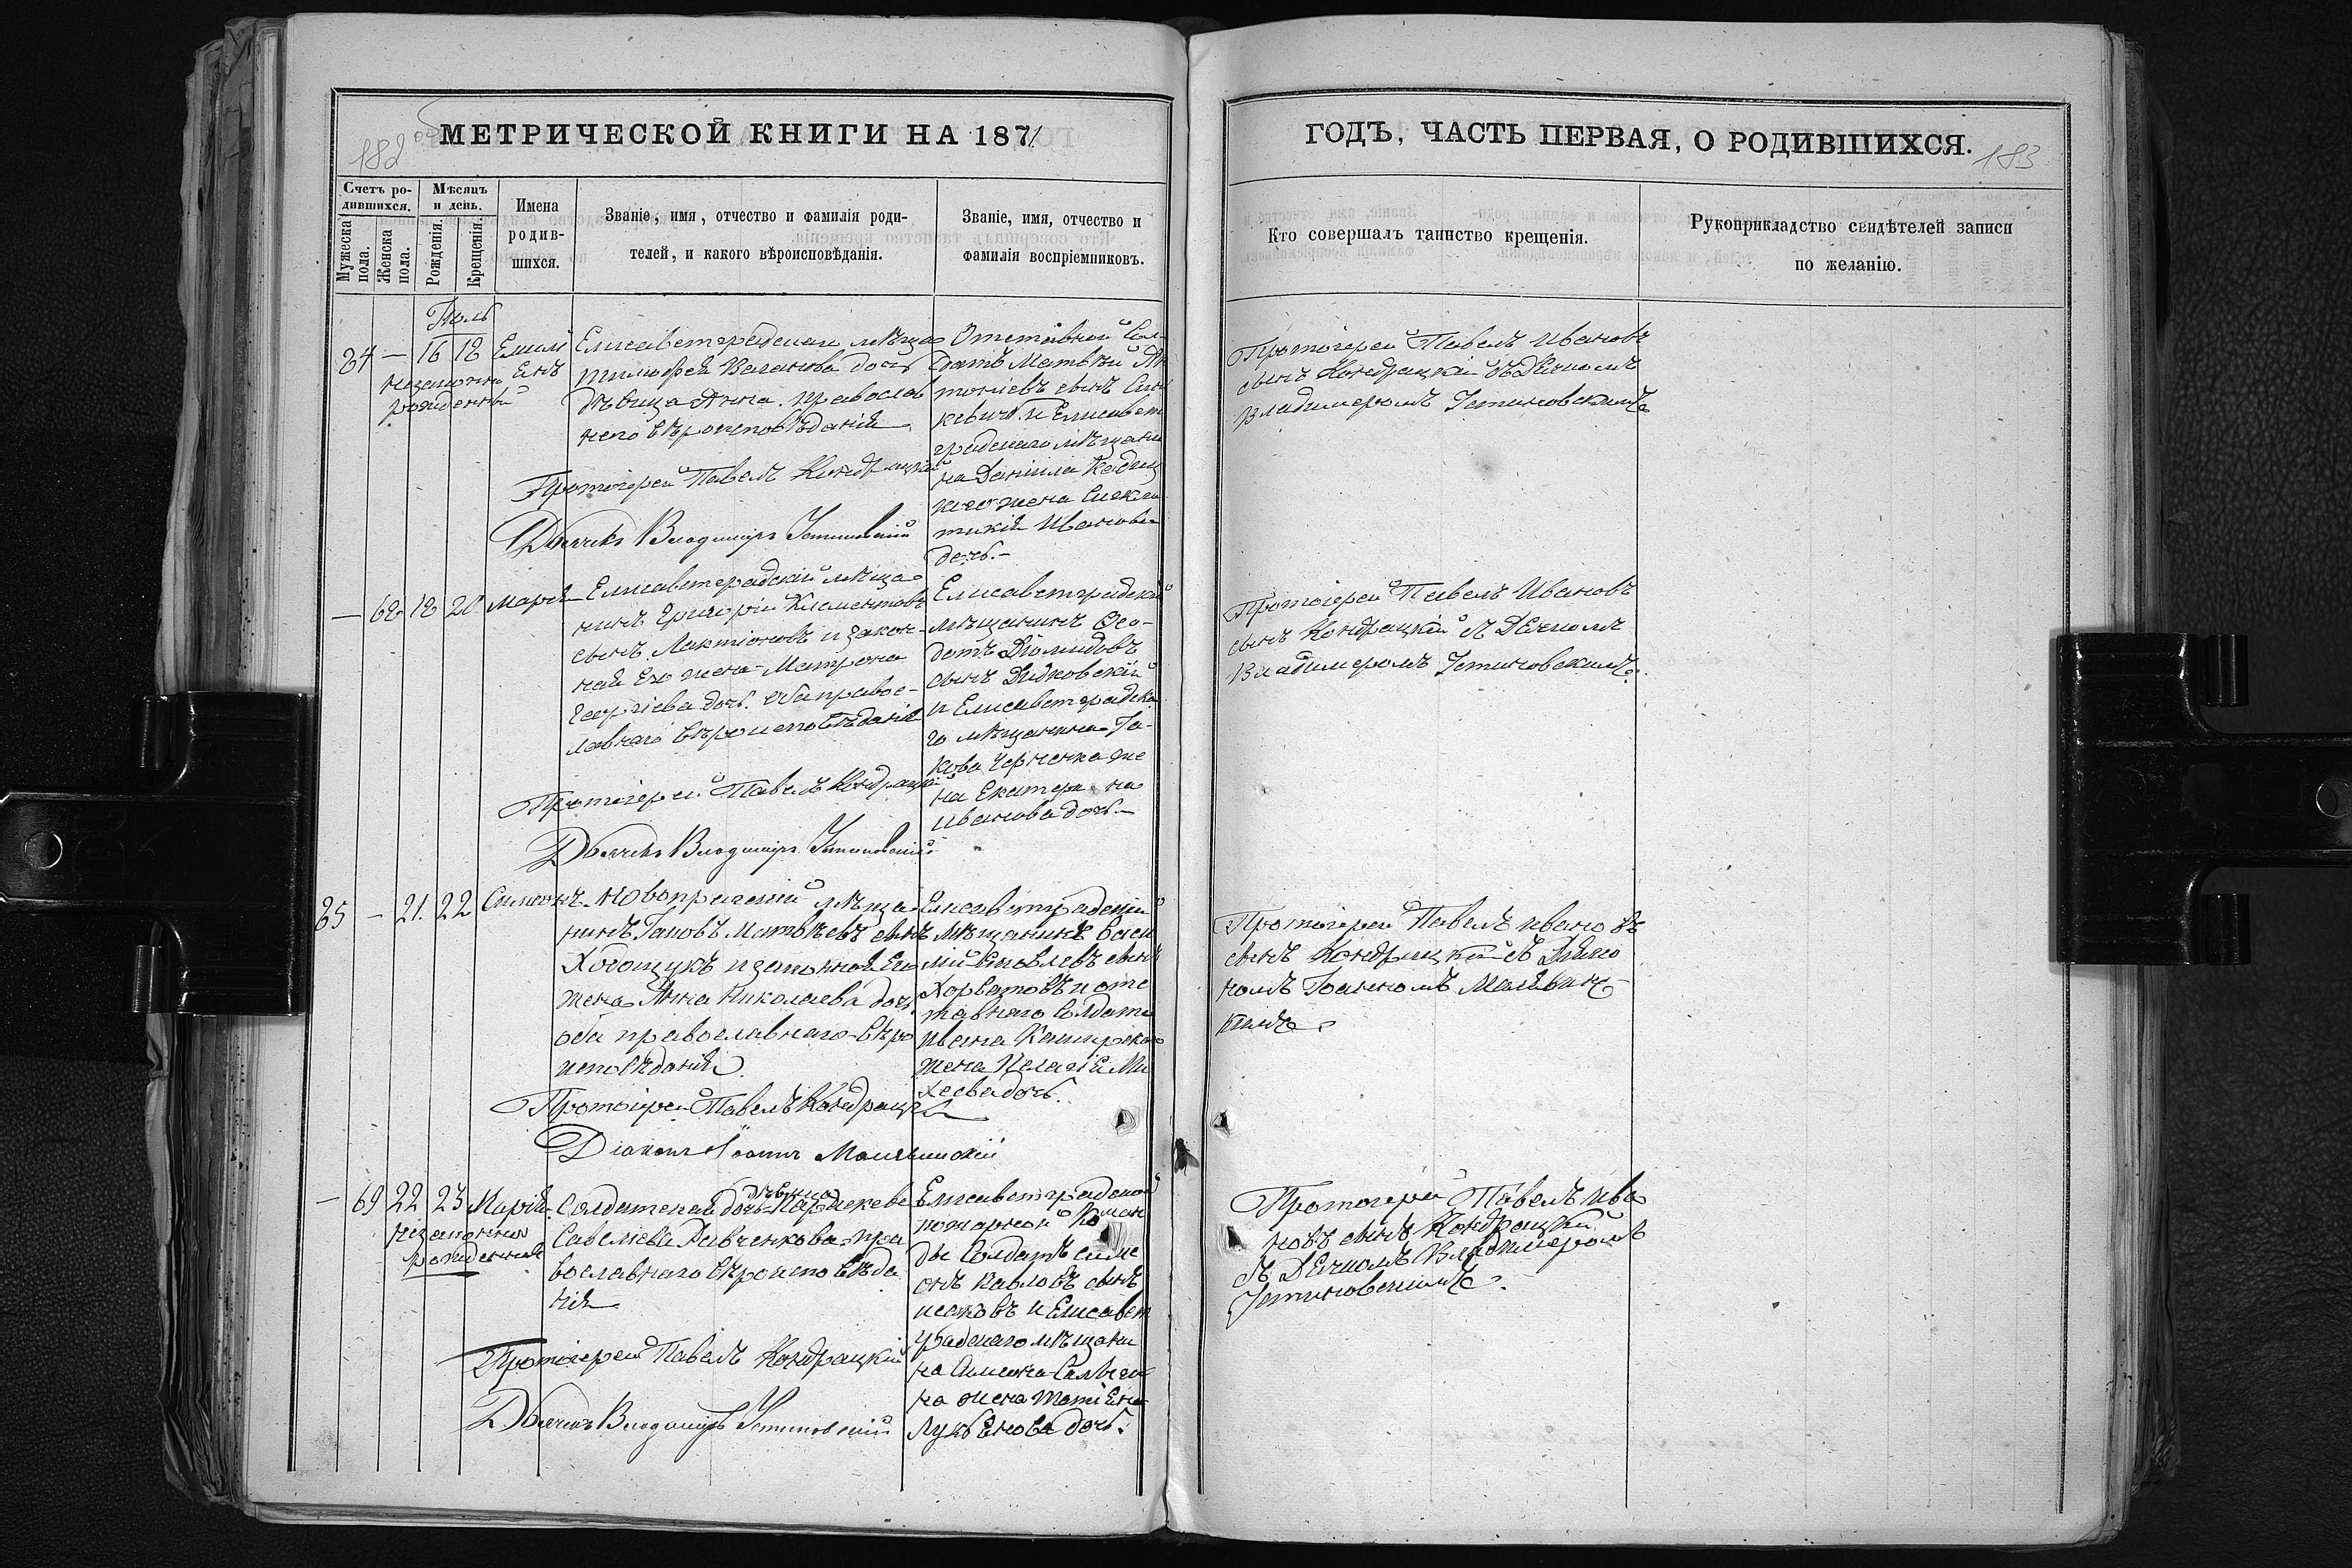 182 об
МЕТРИЧЕСКОЙ КНИГИ НА 1871
Счетъ ро-
дившихся.
Мужеска
пола.
Женска
пола.
Мѣсяцъ
и день.
Рожденія.
Крещенія.
Имена
родив-
шихся.
Званіе, имя, отчество и фамилія роди-
телей, и какого вѣроисповѣданія.
Званіе, имя, отчество и
фамилія воспріемниковъ.
84 — 16 18
незаконно
рожденный
Емилі
анъ
дѣвица Анна. православ
наго вѣроисповѣданія
Протоіерей Павелъ Кондрацкій
Дьячекъ Владиміръ Устиновскій
Отставной Сол-
датъ Матвѣй
сынъ
и Елисавет
градскаго мѣщани
на Даніила
жена
Иванова
дочь.—
— 68 18 20 Марія
Елисаветградскій мѣща-
нинъ Григорій Климентовъ
сынъ Лактіоновъ и закон-
ная Его жена Матрона
Георгіева дочь. Оба правос-
лавнаго вѣроисповѣданія
Протоіерей Павелъ Кондрацкій
Дьячекъ Владиміръ Устиновскій
Елисаветградскій
мѣщанинъ Ѳео-
дотъ Діомидовъ
сынъ Дидковскій
и Елисаветградска
го мѣщанина Іа-
кова Черненка же
на Екатерина
Иванова дочь.—
85 — 21. 22 Симеонъ.
Новопражскій мѣща-
нинъ Іаковъ Матвѣевъ сынъ
Ходощукъ и законная Его
жена Анна Николаева дочь
оба православнаго вѣро
исповѣданія
Протоіерей Павелъ Кондрацкій
Діаконъ Іоаннъ
Елисаветградскій
мѣщанинъ Васи
лій Яковлевъ сынъ
Хорватовъ и отс
тавнаго Солдата
Ивана
жена Пелагія Ми
хеева дочь.
— 69 22 23 Марія.
незаконно
рожденная
дѣвица
Солдатская дочь Параскева
Савеліева Равченкова пра
вославнаго вѣроисповѣда
нія
Протоіерей Павелъ Кондрацкій
Дьячекъ Владиміръ Устиновскій
Елисаветградской
пожарной Коман
ды Солдатъ Симе
онъ Павловъ сынъ
и Елисавет
градскаго мѣщани
на
на жена Татіана
Лукьянова дочь.
ГОДЪ, ЧАСТЬ ПЕРВАЯ, О РОДИВШИХСЯ.
183
Кто совершалъ таинство крещенія.
Рукоприкладство свидѣтелей записи
по желанію.
Протоіерей Павелъ Ивановъ
сынъ Кондрацкій съ Дьячкомъ
Владимеромъ Устиновскимъ
Протоіерей Павелъ Ивановъ
сынъ Кондрацкій съ Дьячкомъ
Владимеромъ Устиновскимъ.
Протоіерей Павелъ Ивановъ
сынъ Кондрацкій съ Діако
номъ Іоанномъ
Протоіерей Павелъ Ива
новъ сынъ Кондрацкій
съ Дьячкомъ Владимеромъ
Устиновскимъ.